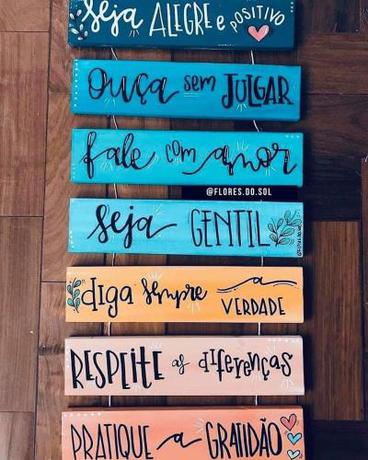 Seja ALEGRE e POSITIVO
OUÇA sem JULGAR
fale com amor
@FLORES.DO.SOL
Seja GENTIL
diga sempre a VERDADE
RESPEITE as diferenças
PRATIQUE a GRATIDÃO